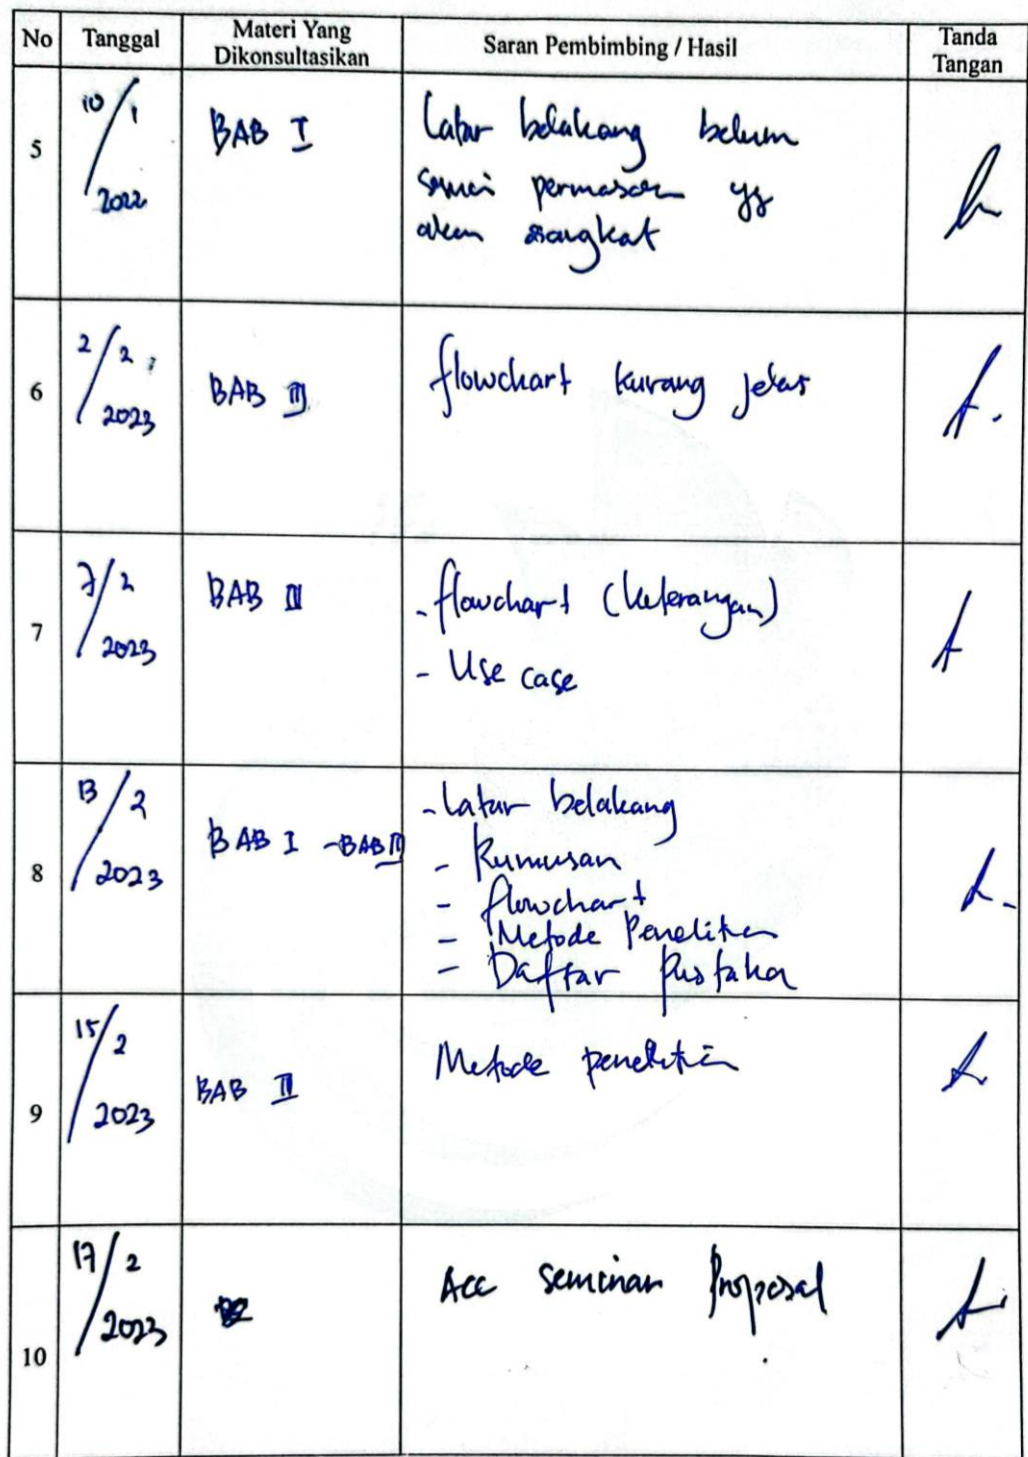 No Tanggal Materi Yang Dikonsultasikan Saran Pembimbing / Hasil Tanda Tangan
5 10/1 2022 BAB I Latar belakang belum
sesuai permasalan yg
akan diangkat
6 2/2 2023 BAB III flowchart kurang jelas
7 7/2 2023 BAB III - flowchart (keterangan)
- Use case
8 13/2 2023 BAB I - BAB III - Latar belakang
- Rumusan
- flowchart
- Metode Penelitian
- Daftar Pustaka
9 15/2 2023 BAB III Metode penelitian
10 17/2 2023 Acc seminar Proposal